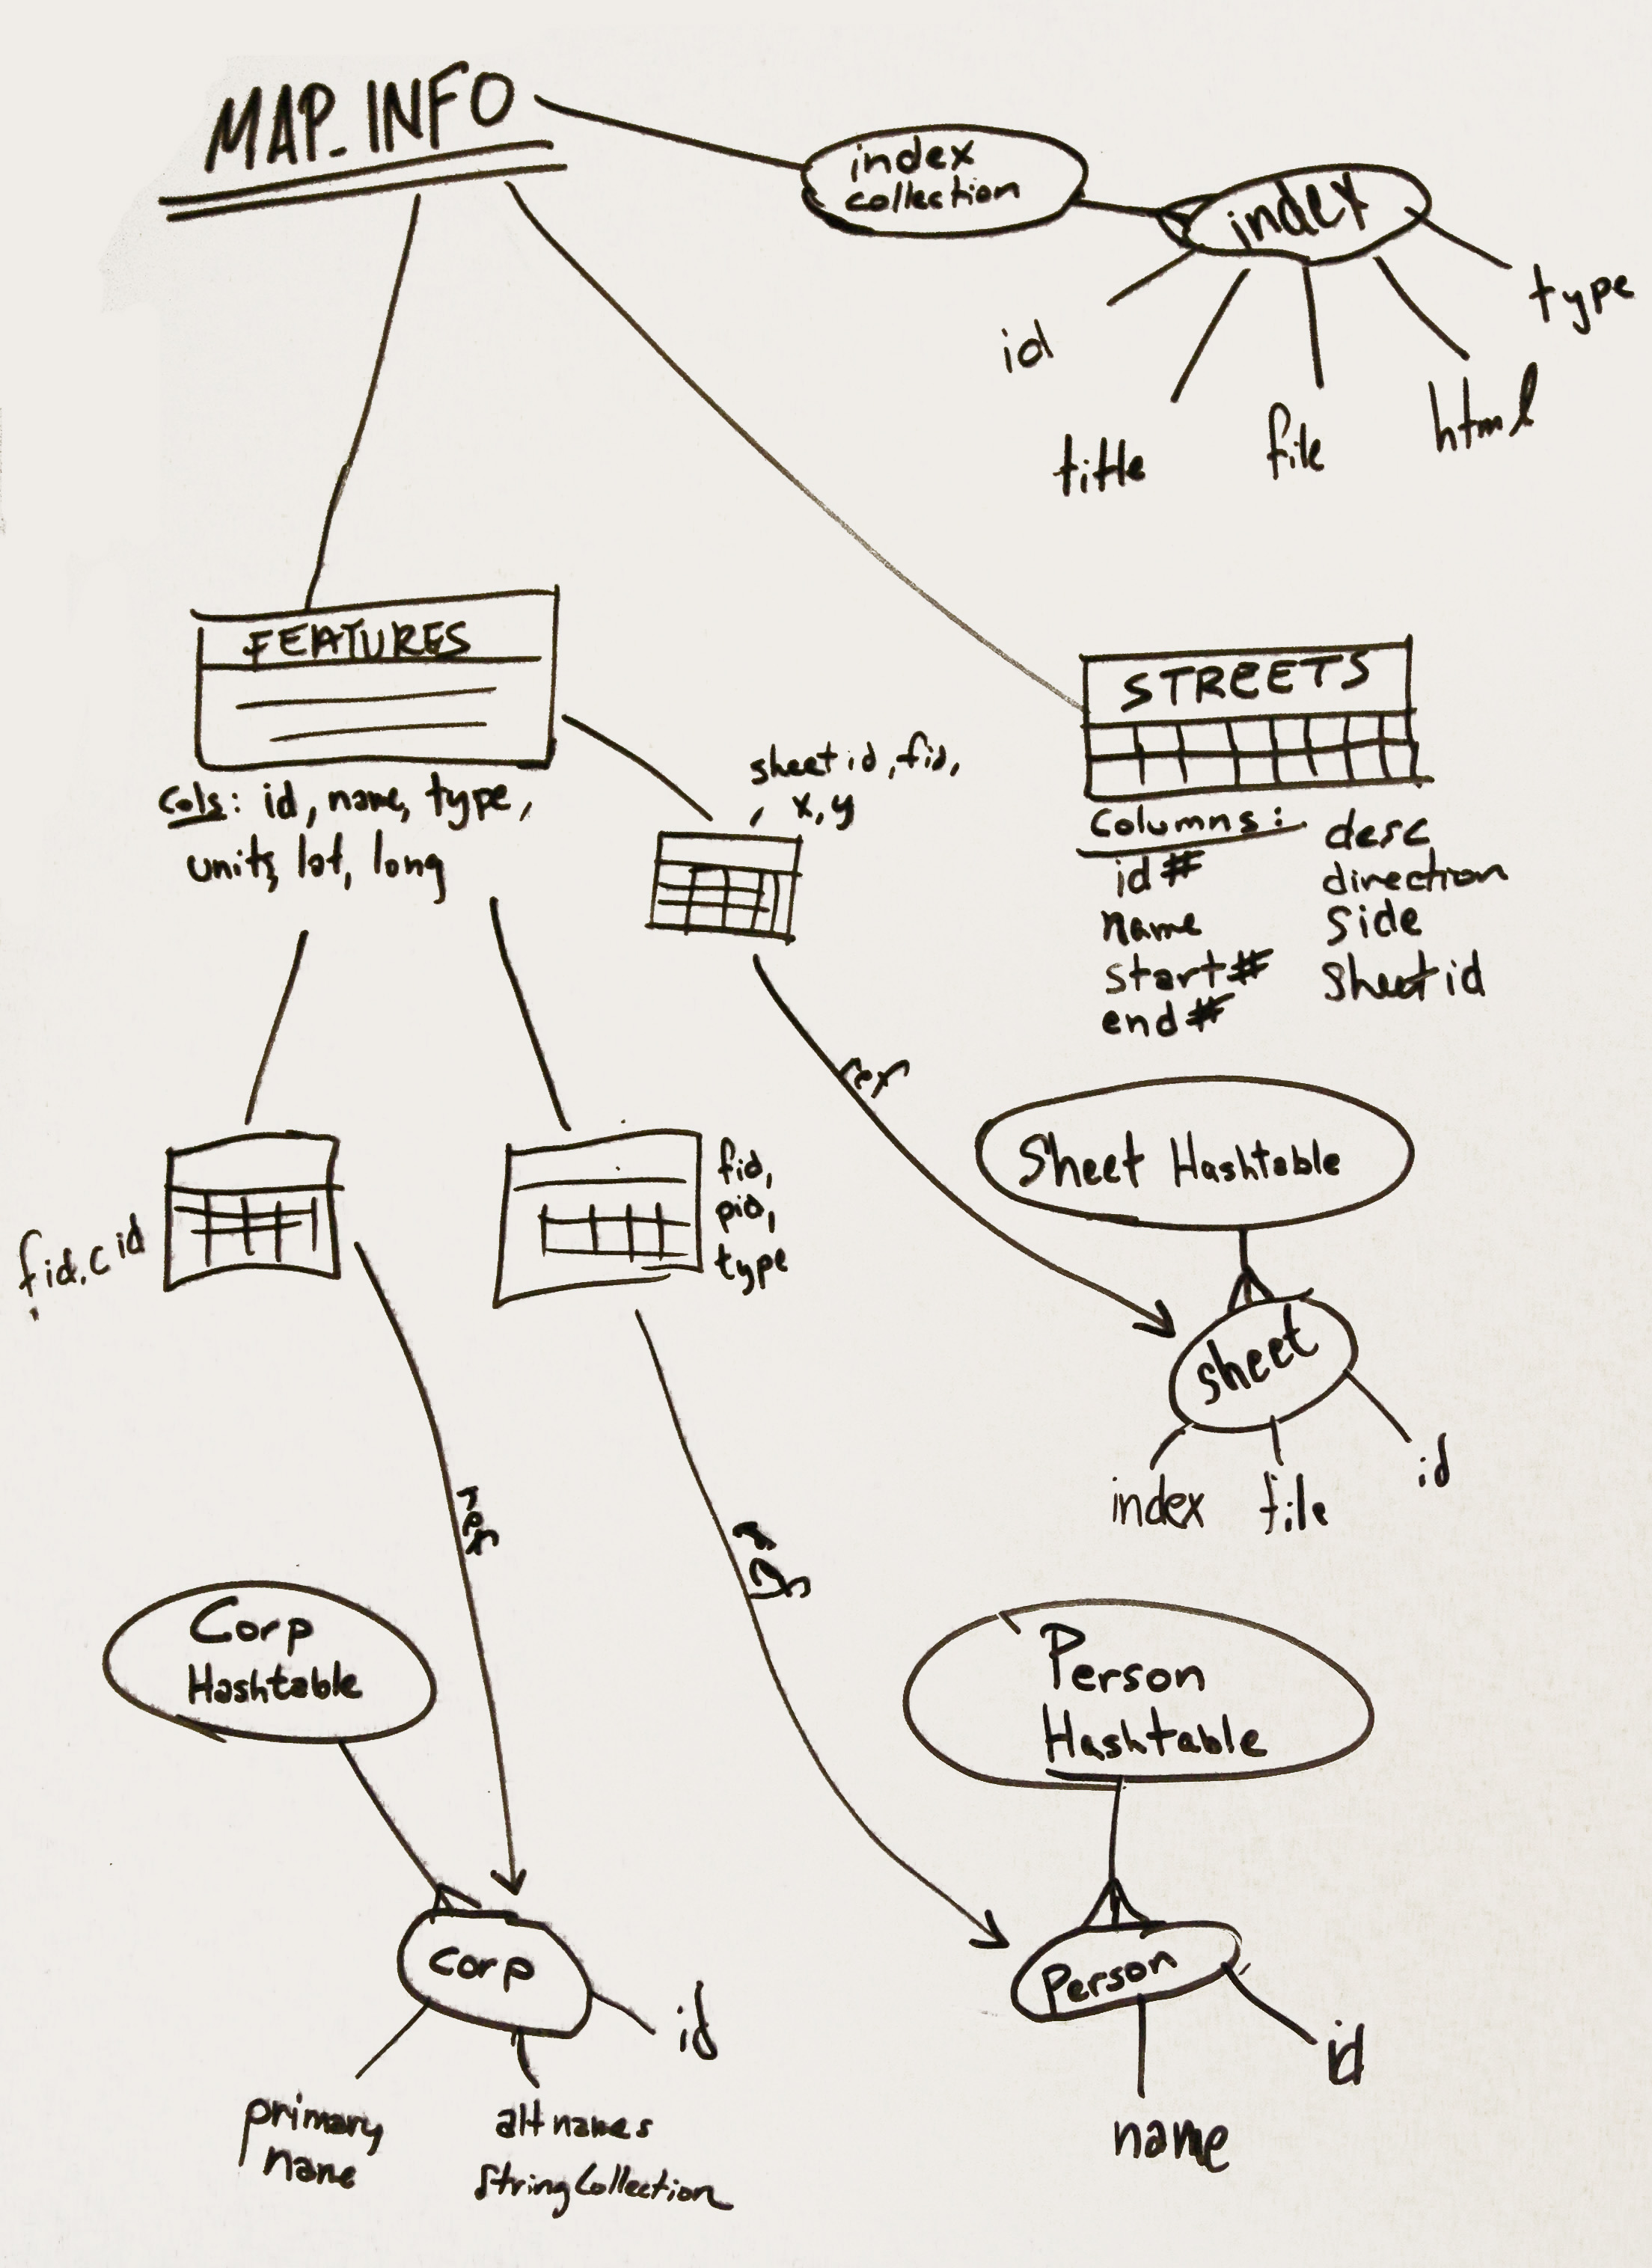 MAP_INFO
index
collection
index
id
title
file
html
type
FEATURES
cols: id, name, type,
units, lat, long
sheet id, fid,
x, y
STREETS
Columns:
id#
name
start#
end#
desc
direction
side
sheet id
fid, cid
fid,
pid,
type
ref
Sheet Hashtable
sheet
index
file
id
ref
ref
Corp
Hashtable
Corp
primary
name
alt names
StringCollection
id
Person
Hashtable
Person
name
id